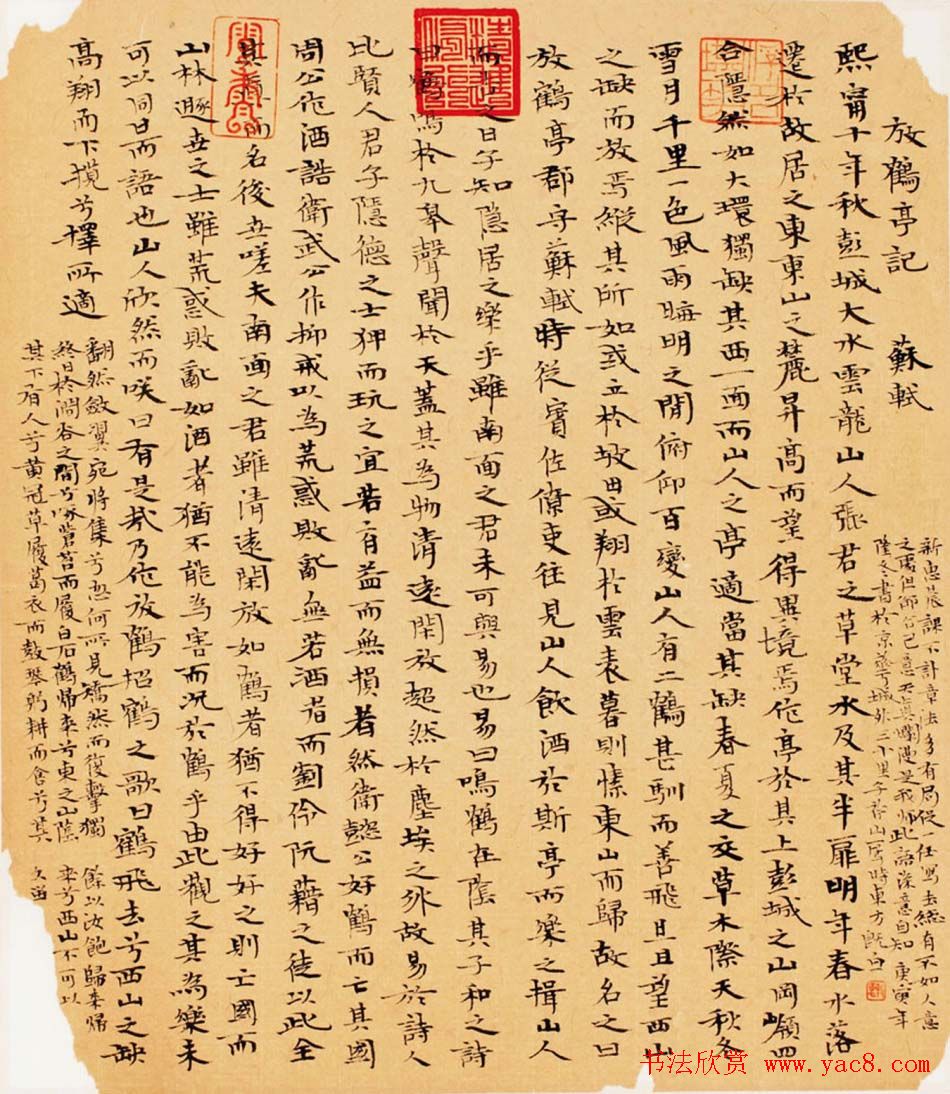 放鶴亭記 蘇軾
熙甯十年秋彭城大水雲龍山人張君之草堂水及其半扉明年春水落
遷於故居之東東山之麓昇高而望得異境焉作亭於其上彭城之山岡嶺四
合隱然如大環獨缺其西一面而山人之亭適當其缺春夏之交草木際天秋冬
雪月千里一色風雨晦明之間俯仰百變山人有二鶴甚馴而善飛旦旦望西山
之缺而放焉縱其所如或立於坡田或翔於雲表暮則愫東山而歸故名之曰
放鶴亭郡守蘇軾時從賓佐僚吏往見山人飲酒於斯亭而樂之揖山人
而告之曰子知隱居之樂乎雖南面之君未可與易也易曰鳴鶴在陰其子和之詩
曰鶴鳴於九皋聲聞於天蓋其為物清遠閑放超然於塵埃之外故易於詩人
比賢人君子隱德之士狎而玩之宜若有益而無損者然衛懿公好鶴而亡其國
周公作酒誥衛武公作抑戒以為荒惑敗亂無若酒者而劉伶阮藉之徒以此全
其真而名後世嗟夫南面之君雖清遠閑放如鶴者猶不得好好之則亡國而
山林遯世之士雖荒惑敗亂如酒者猶不能為害而況於鶴乎由此觀之其為樂未
可以同日而語也山人欣然而咲曰有是哉乃作放鶴招鶴之歌曰鶴飛去兮西山之缺
高翔而下攬兮擇所適
翻然斂翼宛將集兮忽何所見矯然而復擊獨
終日於澗谷之間兮啄蒼苔而履白石鶴歸來兮東之山陰
其下有人兮黄冠草屨葛衣而鼓琴躬耕而食兮其
餘以汝飽歸來歸
來兮西山不可以
久留
新惠晨課不計章法多有局促一任寫去縱有不如人意
之處但師吾己意天真爛漫是我師此語深意自知庚寅年
隆冬書於京華城外三十里山居時東方既白
书法欣赏 www.yac8.com